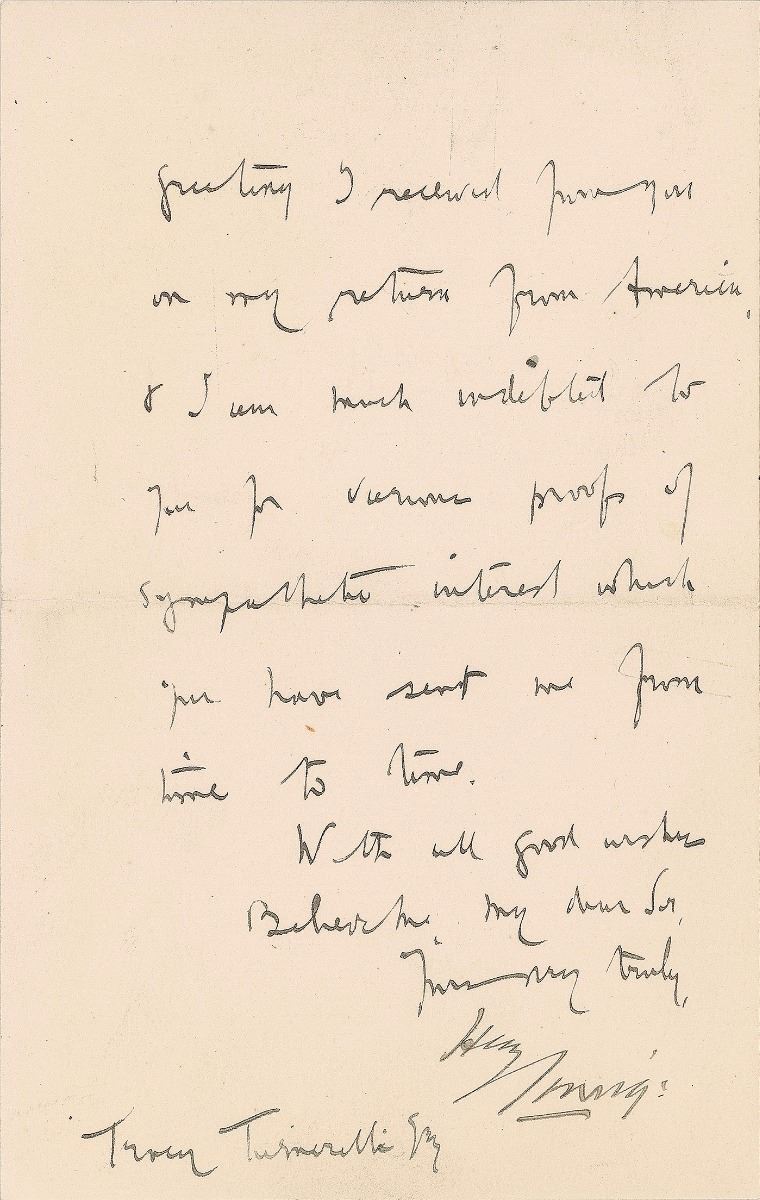 greeting I received from you
on my return from America,
& I am much indebted to
you for various proofs of
sympathetic interest which
you have sent me from
time to time.
With all good wishes
Believe me, my dear Sir,
Yours very truly,
Henry Irving.
Tracy Turnerelli Esq